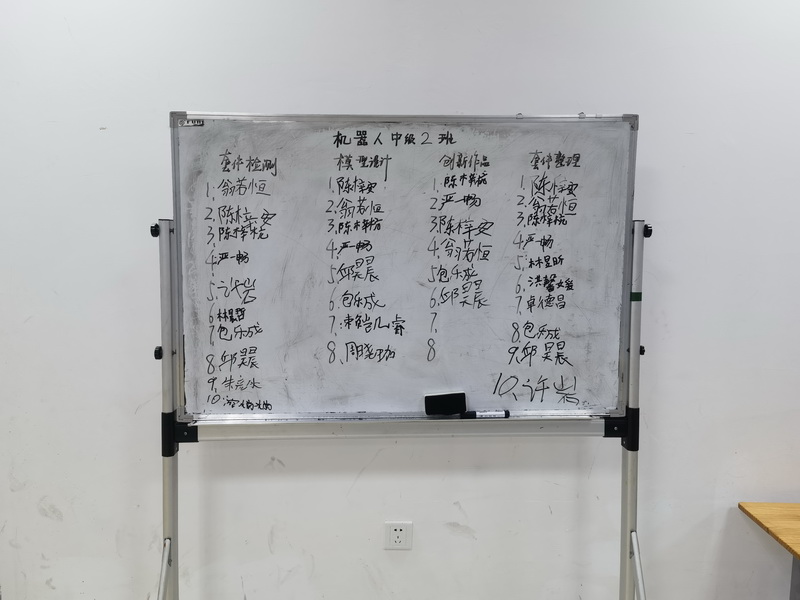 机器人中级2班
套件检测
1.翁若恒
2.陈梓安
3.陈梓杭
4.严一畅
5.许岩
6.林昱昕
7.包乐成
8.邱昊晨
9.
10.
模型设计
1.陈梓安
2.翁若恒
3.陈梓杭
4.严一畅
5.邱昊晨
6.包乐成
7.
8.周晓珈
创新作品
1.陈梓杭
2.严一畅
3.陈梓安
4.翁若恒
5.包乐成
6.邱昊晨
7.
8
套件整理
1.陈梓安
2.翁若恒
3.陈梓杭
4.严一畅
5.林昱昕
6.洪馨媛
7.卓德昌
8.包乐成
9.邱昊晨
10.许岩